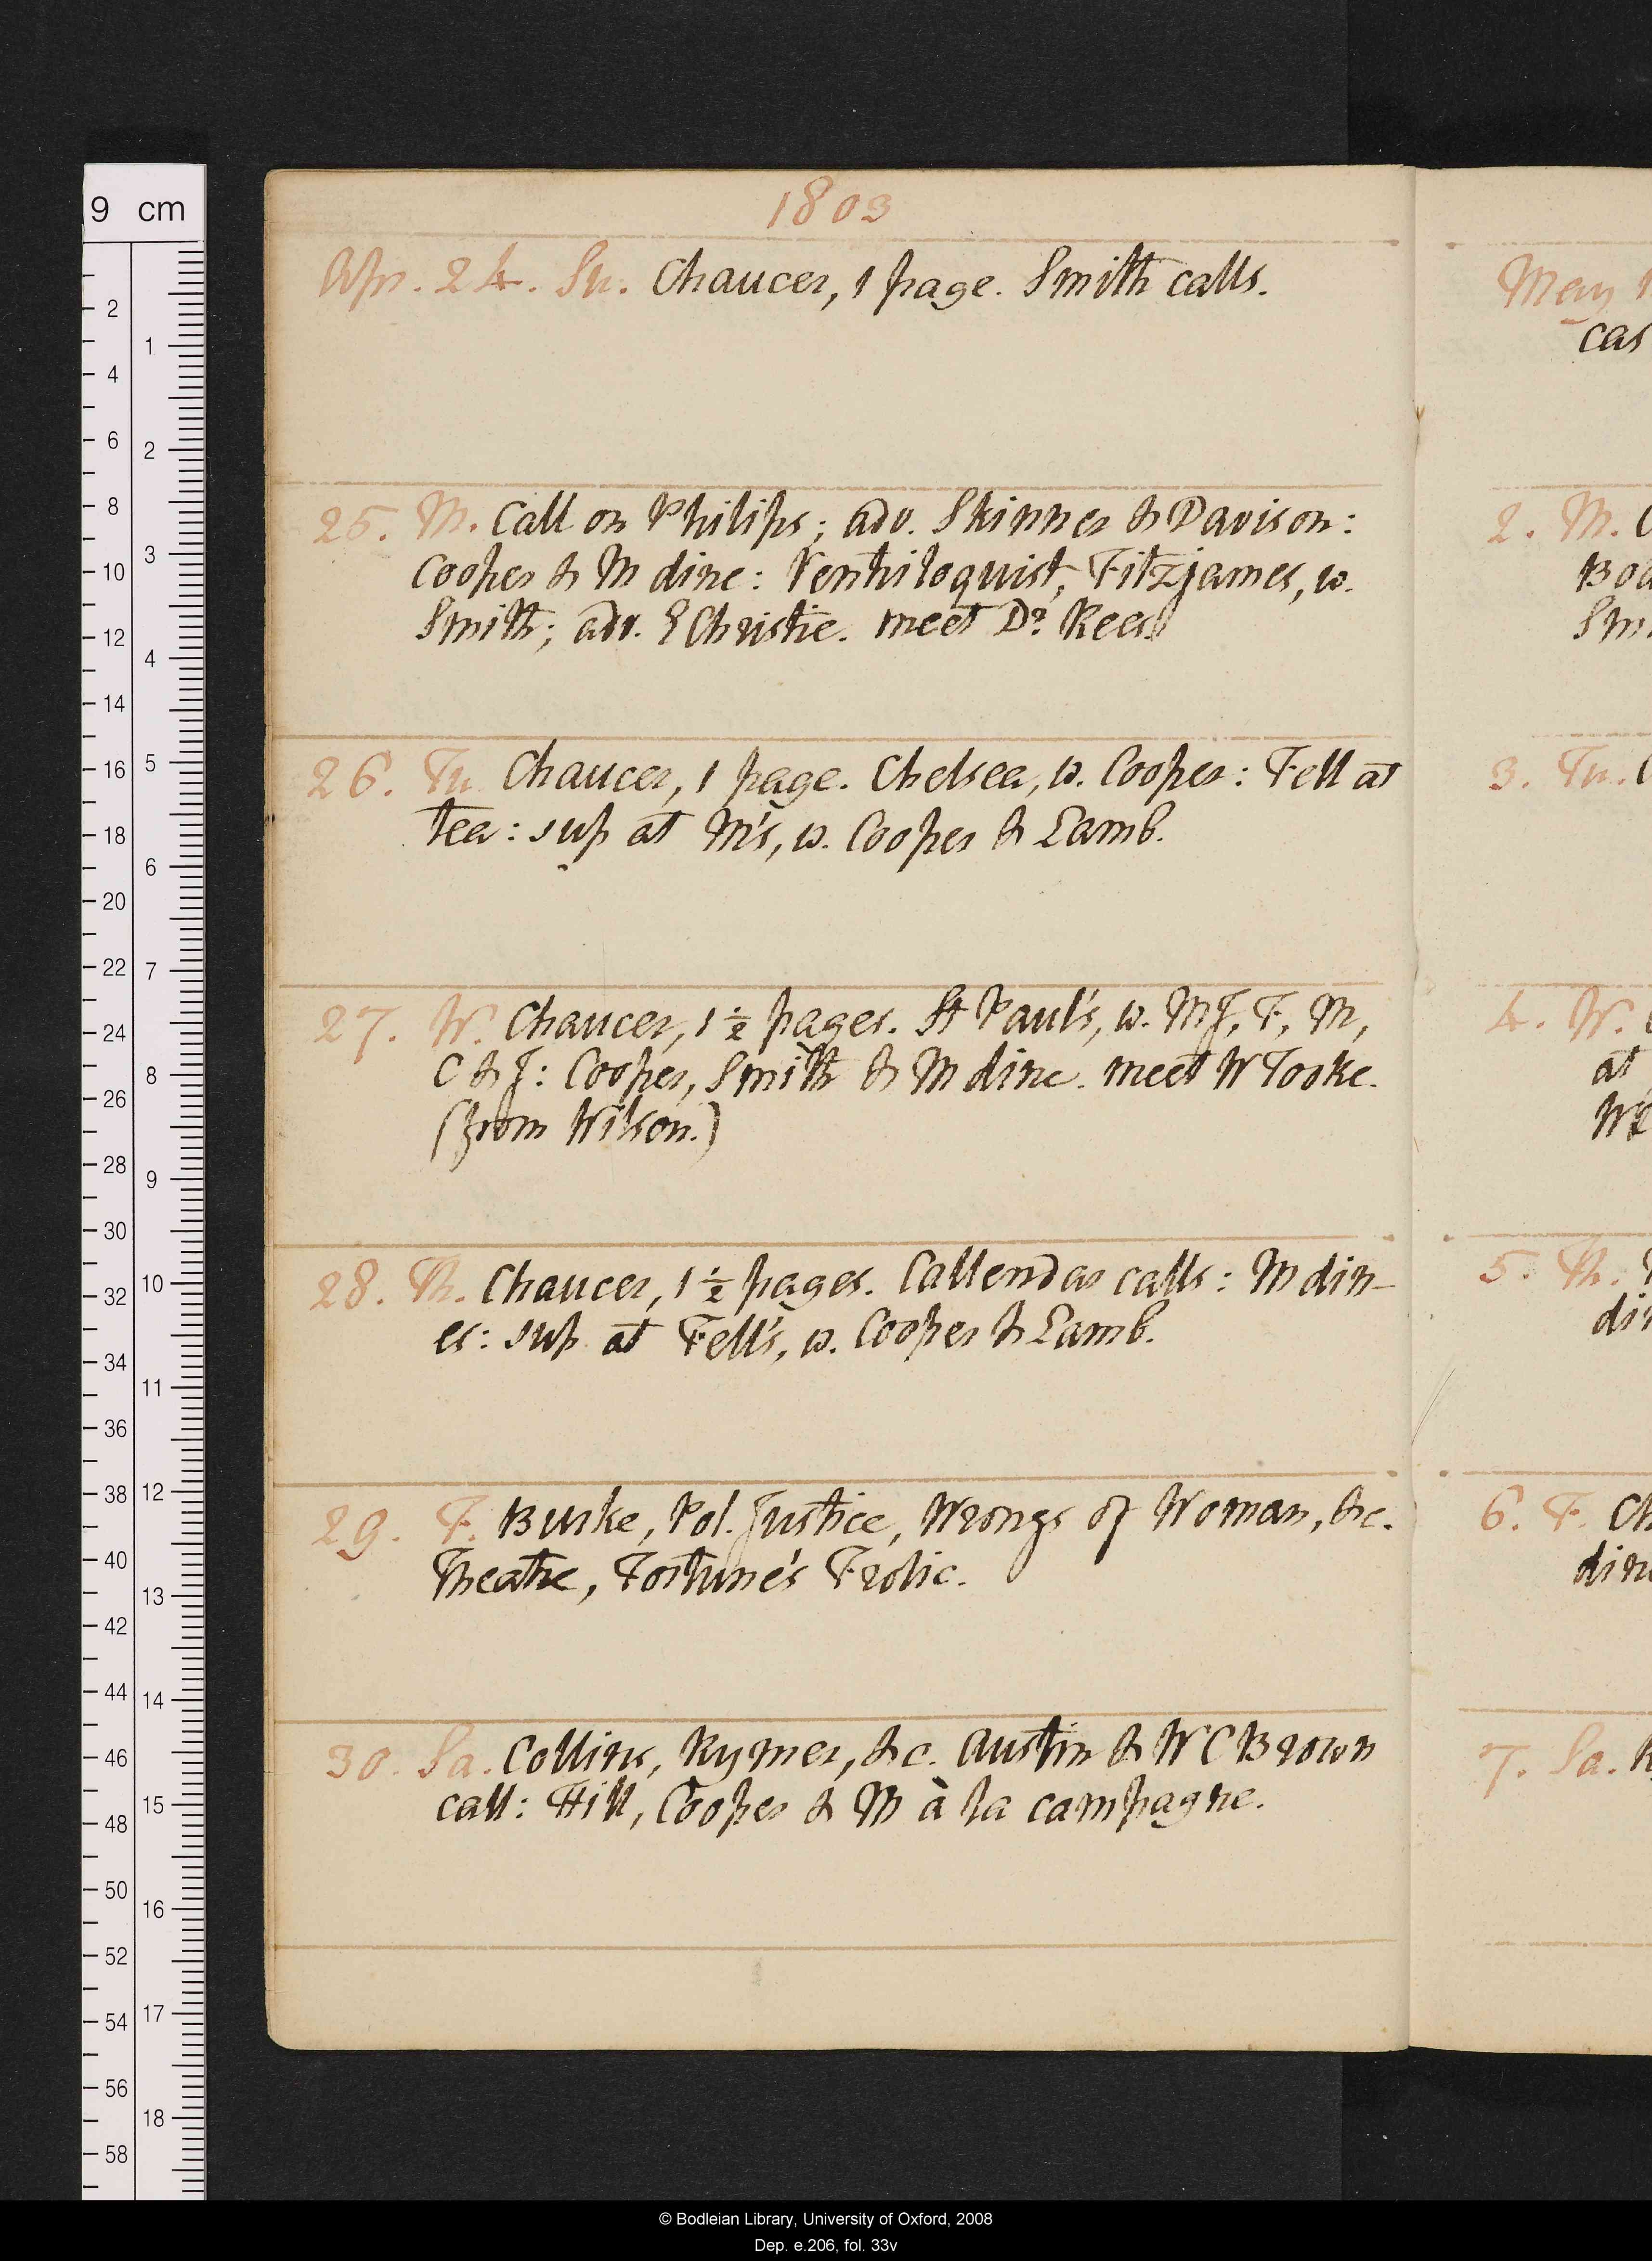 1803
Apr. 24. Su. Chaucer, 1 page. Smith calls.
25. M. Call on Philips; adv. Skinner & Davison:
Cooper & M dine: Ventriloquist, Fitzjames, w.
Smith; adv. E Christie. meet Dr Rees.
26. Tu. Chaucer, 1 page. Chelsea, w. Cooper: Fell at
tea: sup at M's, w. Cooper & Lamb.
27. W. Chaucer, 1 ½ pages. St Paul's, w. MJ, F, M,
C & J: Cooper, Smith & M dine. meet W Tooke.
(from Wilson.)
28. Th. Chaucer, 1 ½ pages. Callendar calls: M din-
es: sup at Fell's, w. Cooper & Lamb.
29. F. Burke, Pol. Justice, Wrongs of Woman, &c.
Theatre, Fortune's Frolic.
30. Sa. Collins, Rymer, &c. Austin & W C Brown
call: Hill, Cooper & M à la campagne.
May 1
cas
2. M. C
Boa
Sm
3. Tu. C
4. W.
at
5. Th.
din
6. F. Ch
dine
7. Sa. R
9 cm
2
4
6
8
10
12
14
16
18
20
22
24
26
28
30
32
34
36
38
40
42
44
46
48
50
52
54
56
58
1
2
3
4
5
6
7
8
9
10
11
12
13
14
15
16
17
18
© Bodleian Library, University of Oxford, 2008
Dep. e.206, fol. 33v